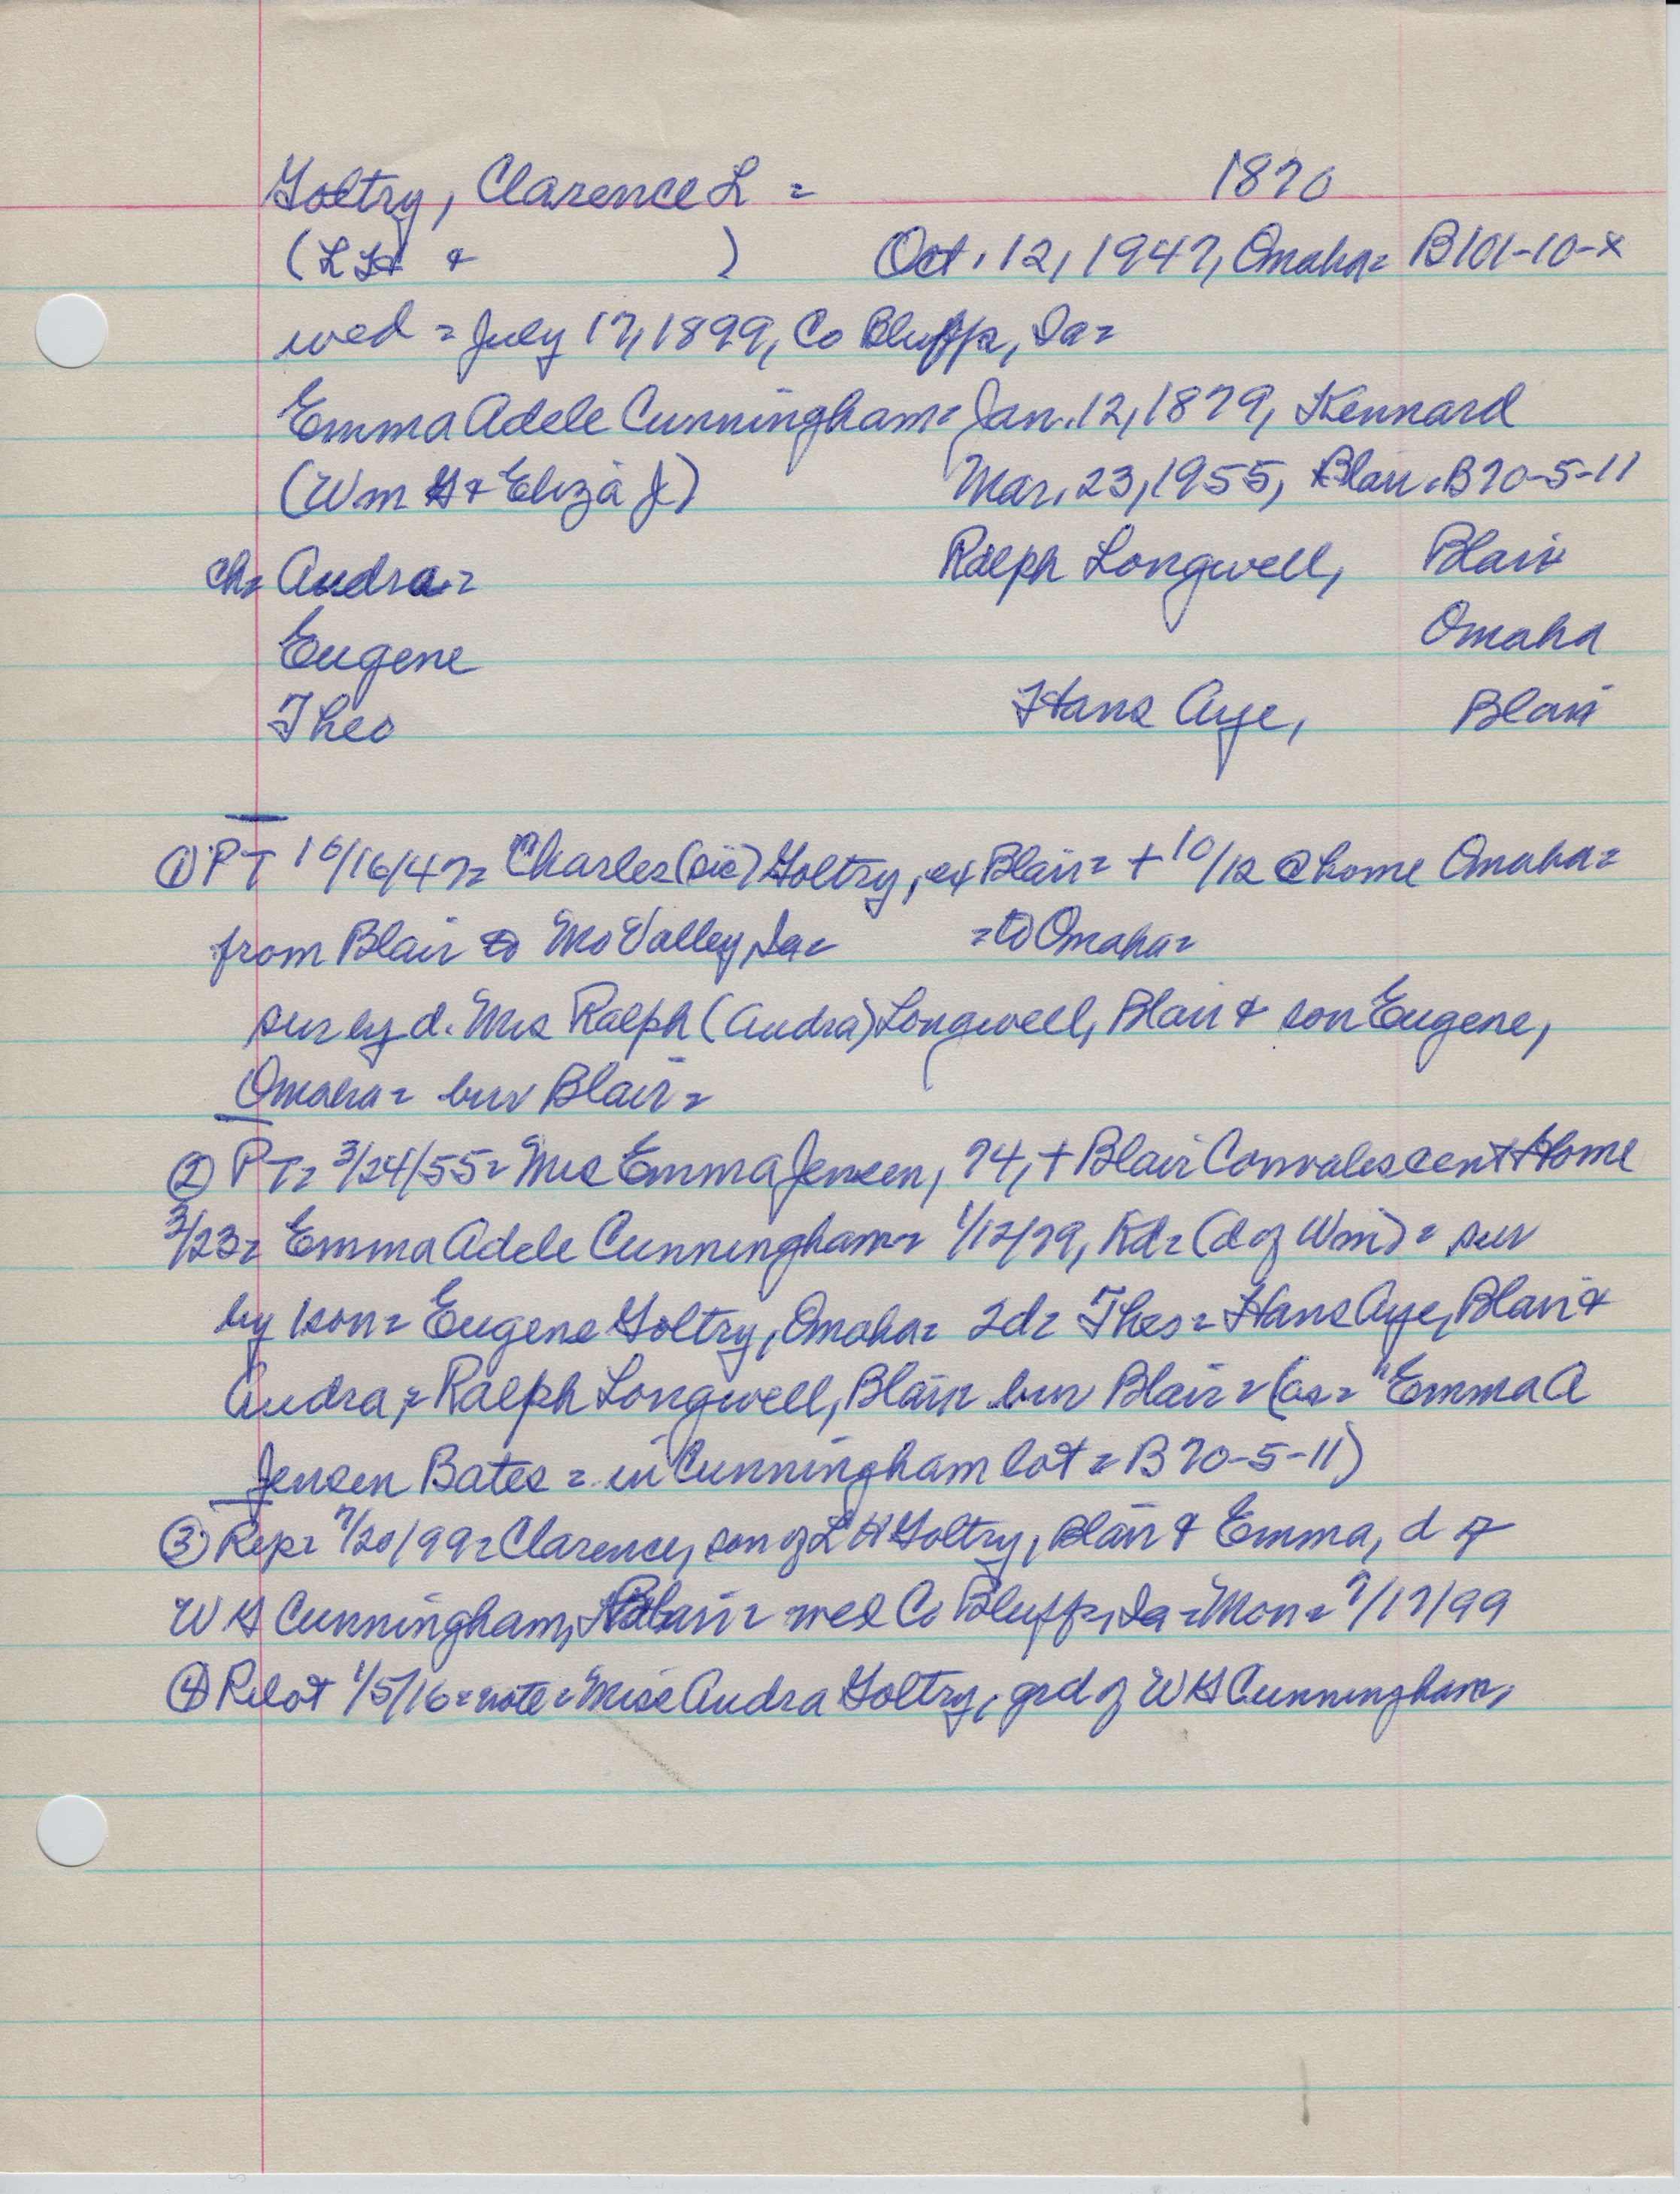 Goltry, Clarence L = 1870
(L H & ) Oct. 12, 1947, Omaha = B101-10-x
wed = July 17, 1899, Co Bluffs, Ia =
Emma Adele Cunningham = Jan. 12, 1879, Kennard
(Wm H & Eliza J) Mar. 23, 1955, Blair = B70-5-11
ch = Audra = Ralph Longwell, Blair
Eugene Omaha
Theo Hans Aye, Blair
① PT 10/16/47 = "Charles (sic) Goltry, ex Blair = + 10/12 @ home Omaha =
from Blair to Mo Valley, Ia = = to Omaha =
sur by d. Mrs Ralph (Audra) Longwell, Blair & son Eugene,
Omaha = bur Blair =
② PT = 3/24/55 = Mrs Emma Jensen, 74, + Blair Convalescent Home
3/23 = Emma Adele Cunningham = 1/12/79, Kd = (d of Wm) = sur
by 1 son = Eugene Goltry, Omaha = 2d = Theo = Hans Aye, Blair &
Audra, = Ralph Longwell, Blair bur Blair = (as = "Emma A
Jensen Bates = in Cunningham lot = B 70-5-11)
③ Rep = 7/20/99 = Clarence, son of L H Goltry, Blair & Emma, d of
W H Cunningham, Blair = wed Co Bluffs, Ia = Mon = 7/17/99
④ Pilot 1/5/16 = note = Miss Audra Goltry, grd of W H Cunningham,